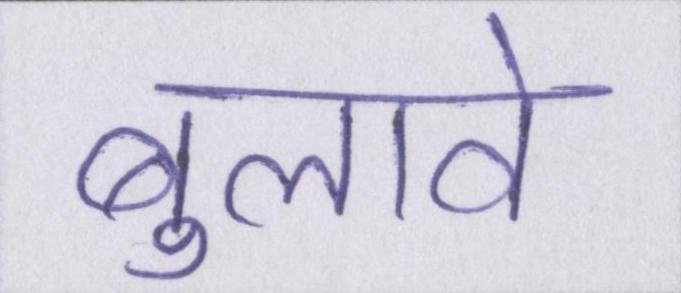 बुलावे